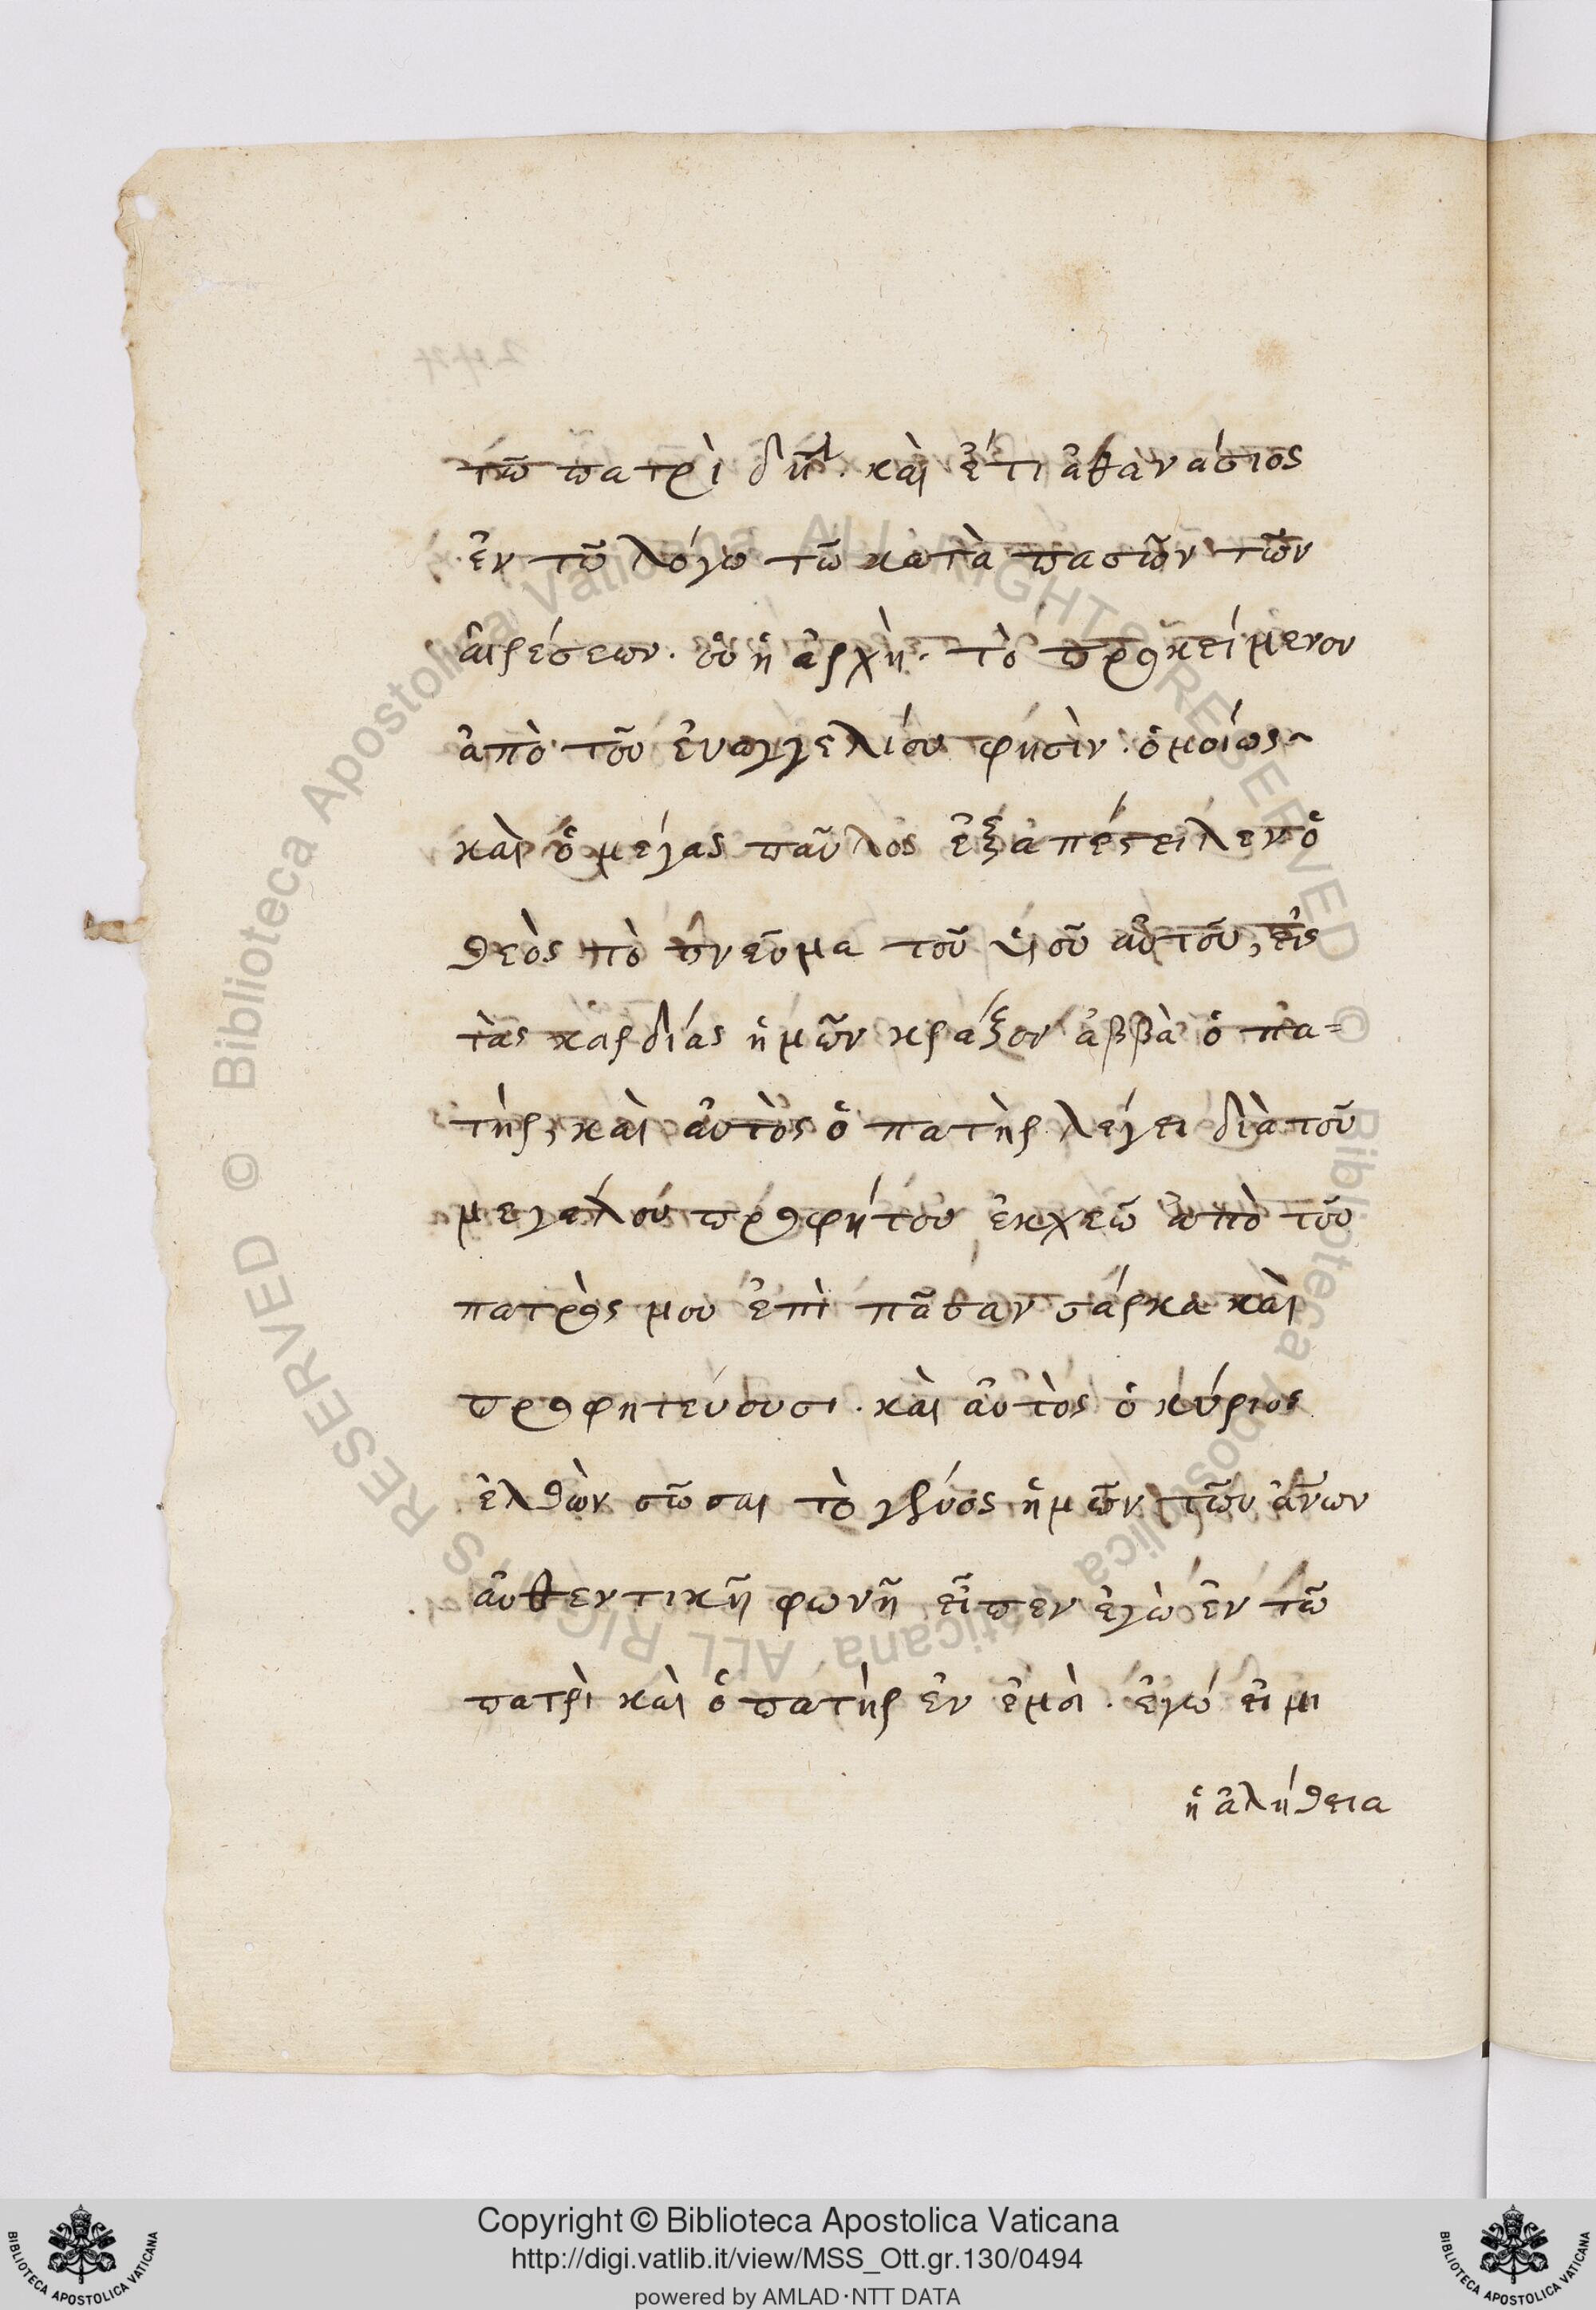 τῶ πατρὶ καὶ ἔτι ἀθανάσιος
ἐν τῶ λόγω τῶ κατὰ πασῶν τῶν
αἱρέσεων. οὗ ἡ ἀρχὴ. τὸ προκείμενον
ἀπὸ τοῦ ἐυαγγελίου φησὶν. ὁμοίως
καὶ ὁ μέγας παῦλος ἐξαπέστειλεν ὁ
θεὸς τὸ πνεῦμα τοῦ ὑιοῦ αὐτοῦ, εἰς
τὰς καρδίας ἡμῶν κράζον ἀββὰ ὁ πα=
τὴρ, καὶ ἀυτὸς ὁ πατὴρ λέγει διὰ τοῦ
μεγάλου προφήτου, ἐκχεῶ ἀπὸ τοῦ
πατρὸς μου ἐπὶ πᾶσαν σάρκα καὶ
προφητεύσουσι. καὶ ἀυτὸς ὁ κύριος
ἐλθὼν σῶσαι τὸ γένος ἡμῶν τῶν ἀνων
ἀυθεντικῆ φωνῆ εἶπεν ἐγὼ ἐν τῶ
πατρὶ καὶ ὁ πατὴρ ἐν ἐμοὶ. ἐγώ εἰμι
ἡ ἀλήθεια
Copyright © Biblioteca Apostolica Vaticana
http://digi.vatlib.it/view/MSS_Ott.gr.130/0494
powered by AMLAD·NTT DATA